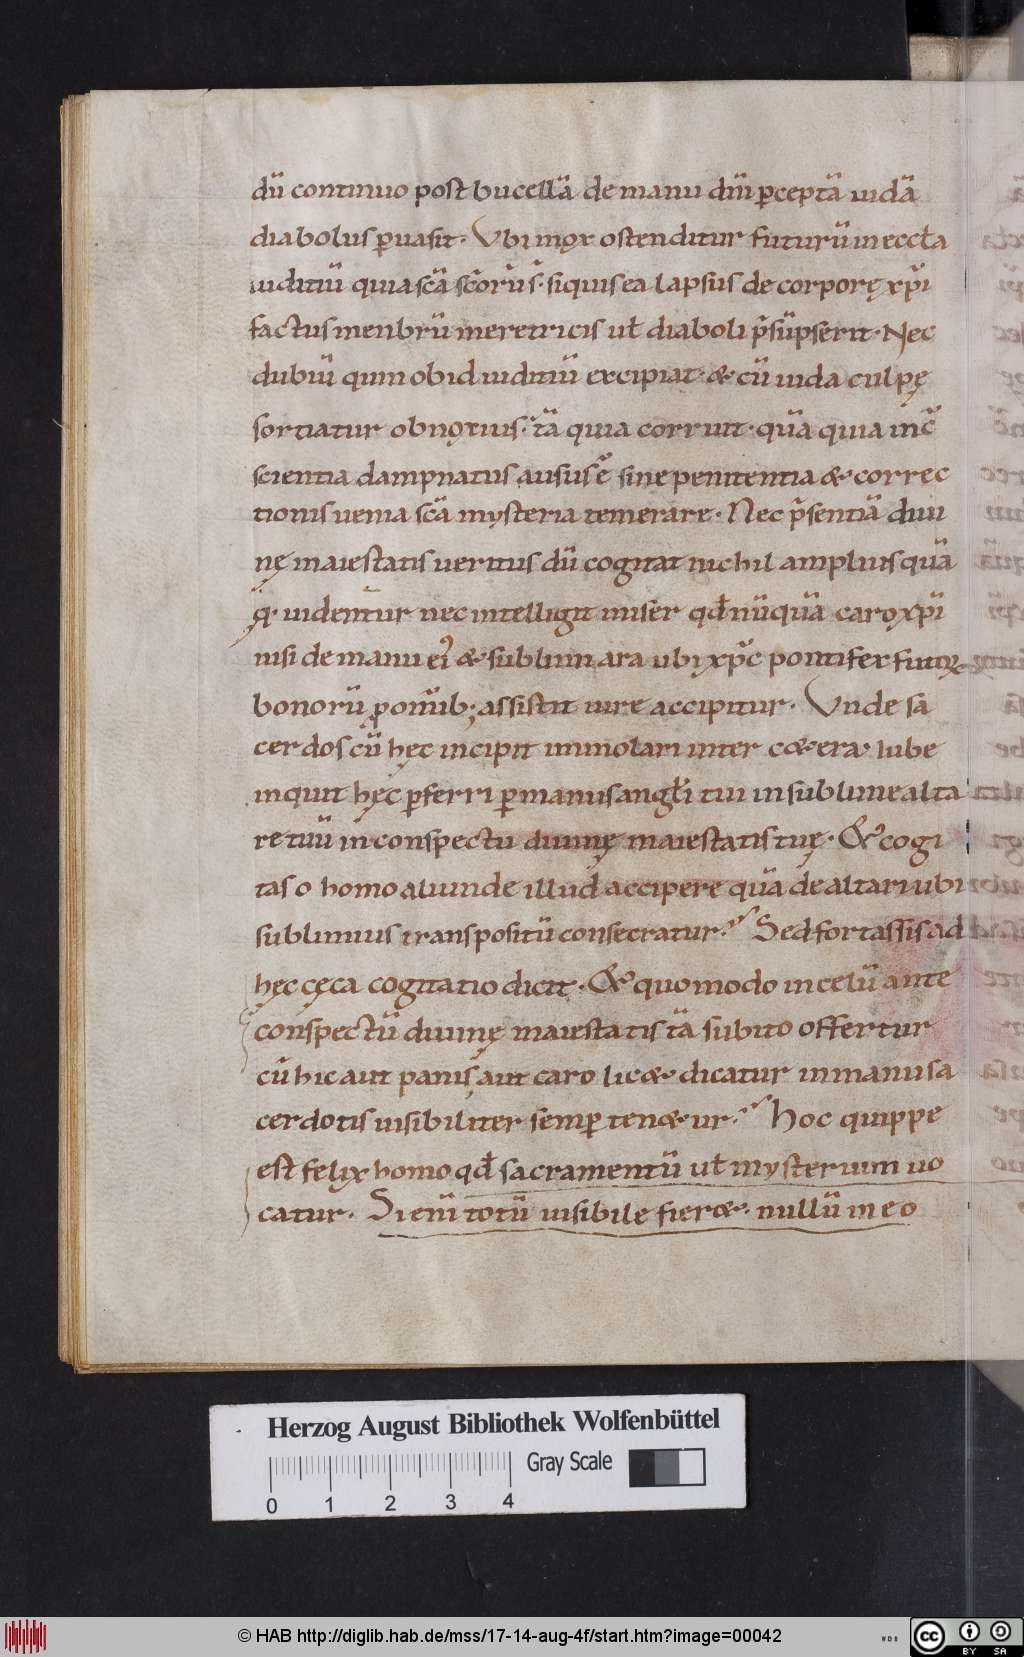 dū continuo post bucellā de manu dn̄i p̱ceptā iudā
diabolus p̱uasit. Vbi mox ostenditur futurū in eccl̄a
iuditiū quia scā scōrū s̄. siquis ea lapsus de corporę xp̄i
factus menbrū meretricis ul̄ diaboli p̄sūpserit. Nec
dubiū quin ob id iuditiū excipiat. & cū iuda culpę
sortiatur obnoxius. tā quia corruit. quā quia inc̄
scientia dampnatus ausus ē sine penitentia & correc
tionis uenia scā mysteria temerare. Nec p̄sentiā diui
nę maiestatis ueritus dū cogitat nichil amplius quā
q̱. uidentur nec intelligit miser qd̄ nūquā caro xp̄i
nisi de manu ei᾽ & sublim ara ubi xp̄c pontifex futurꝝ
bonorū p̱ om̄ib; assistit iure accipitur. Vnde sa
cerdos cū hęc incipit immolari inter c&era. Iube
inquit hęc p̱ferri p̱ manus angl̄i tui in sublime alta
re tuū in conspectu diuinę maiestatis tuę. & cogi
tas o homo aliunde illud accipere quā de altari ubi
sublimius transpositū consecratur? Sed fortassis ad
hęc cęca cogitatio dicit. & quomodo in celū ante
conspectū diuinę maiestatis tā subito offertur
cū hic aut panis aut caro lic& dicatur in manu sa
cerdotis uisibiliter semp̱ ten&ur? Hoc quippe
est felix homo qd̄ sacramentū ul̄ mysterium uo
catur. Si eni᷄ totū uisibile fier&. nullū in eo
Herzog August Bibliothek Wolfenbüttel
Gray Scale
0 1 2 3 4
© HAB http://diglib.hab.de/mss/17-14-aug-4f/start.htm?image=00042
WDB
cc BY SA